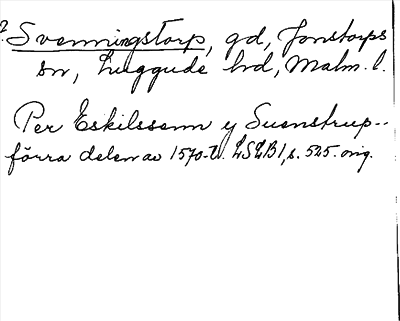 ? Svenningstorp, gd, Jonstorps
sn, Luggude hd, Malm. l.
Per Eskilssonn y Suenstrup..
förra delen av 1570-t. LSLB1, s. 525. orig.